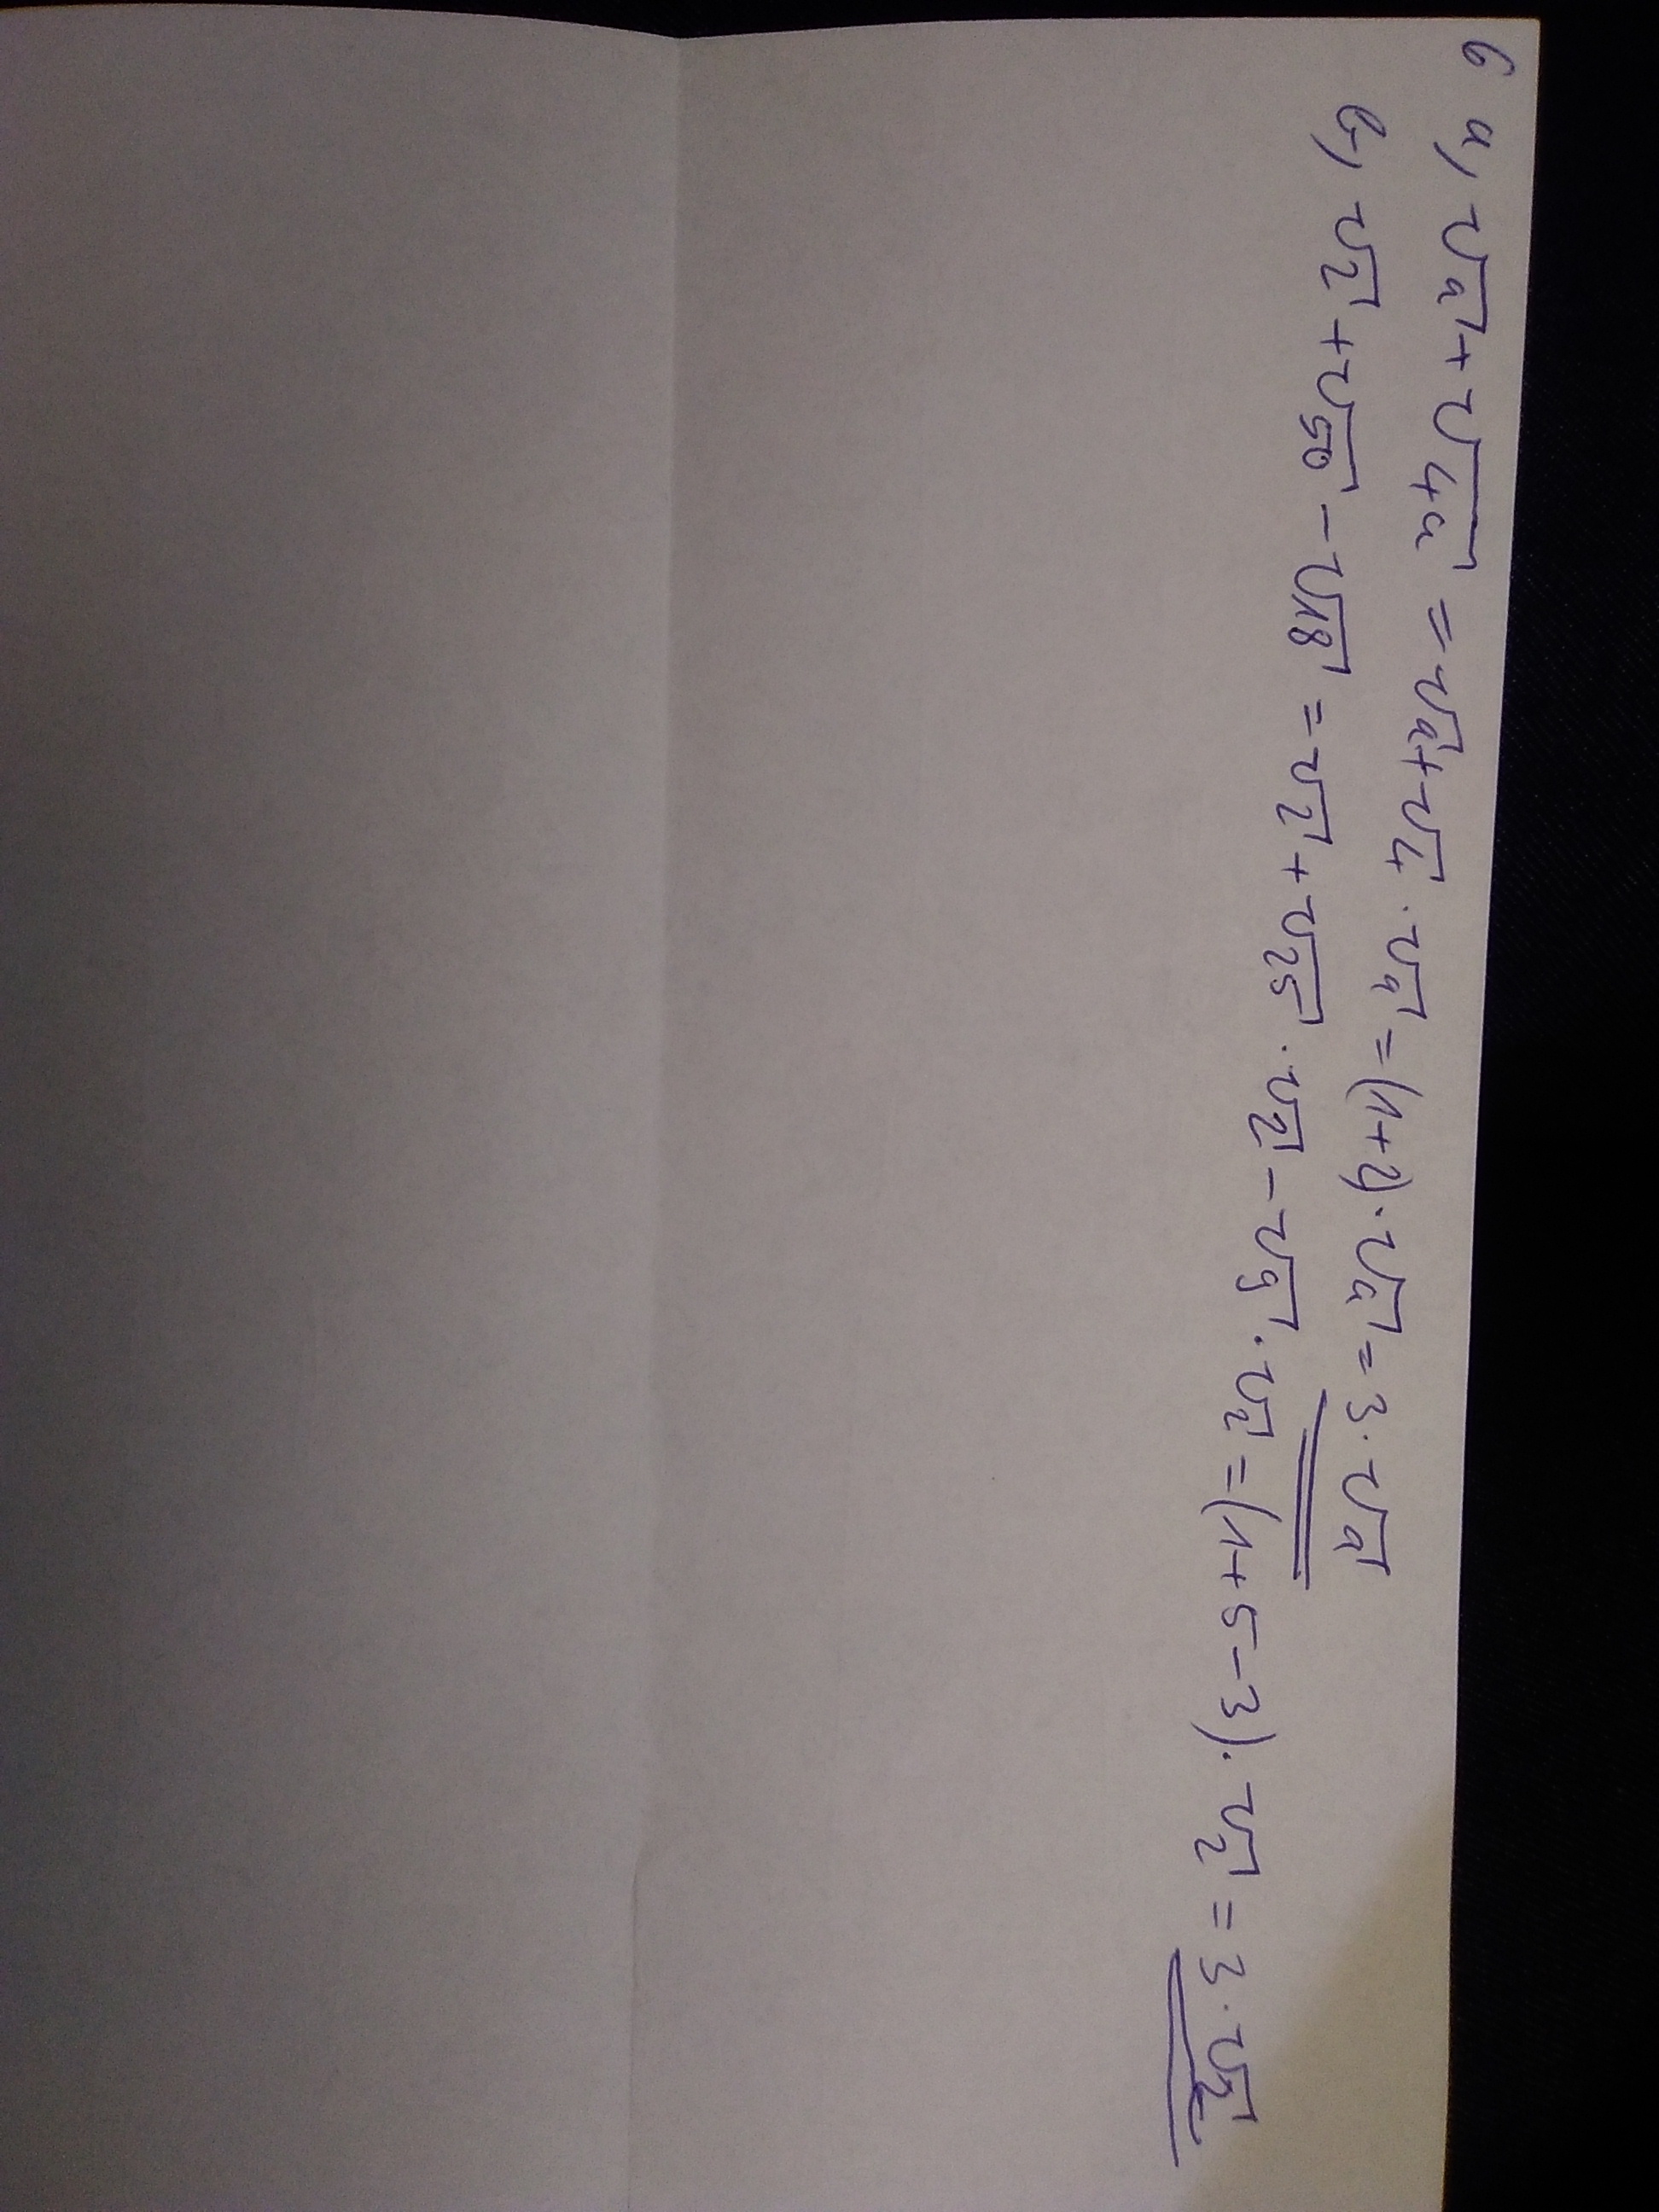 6 a, √a + √4a = √a + √4 · √a = (1+2) · √a = 3 · √a
b, √2 + √50 - √18 = √2 + √25 · √2 - √9 · √2 = (1+5-3) · √2 = 3 · √2